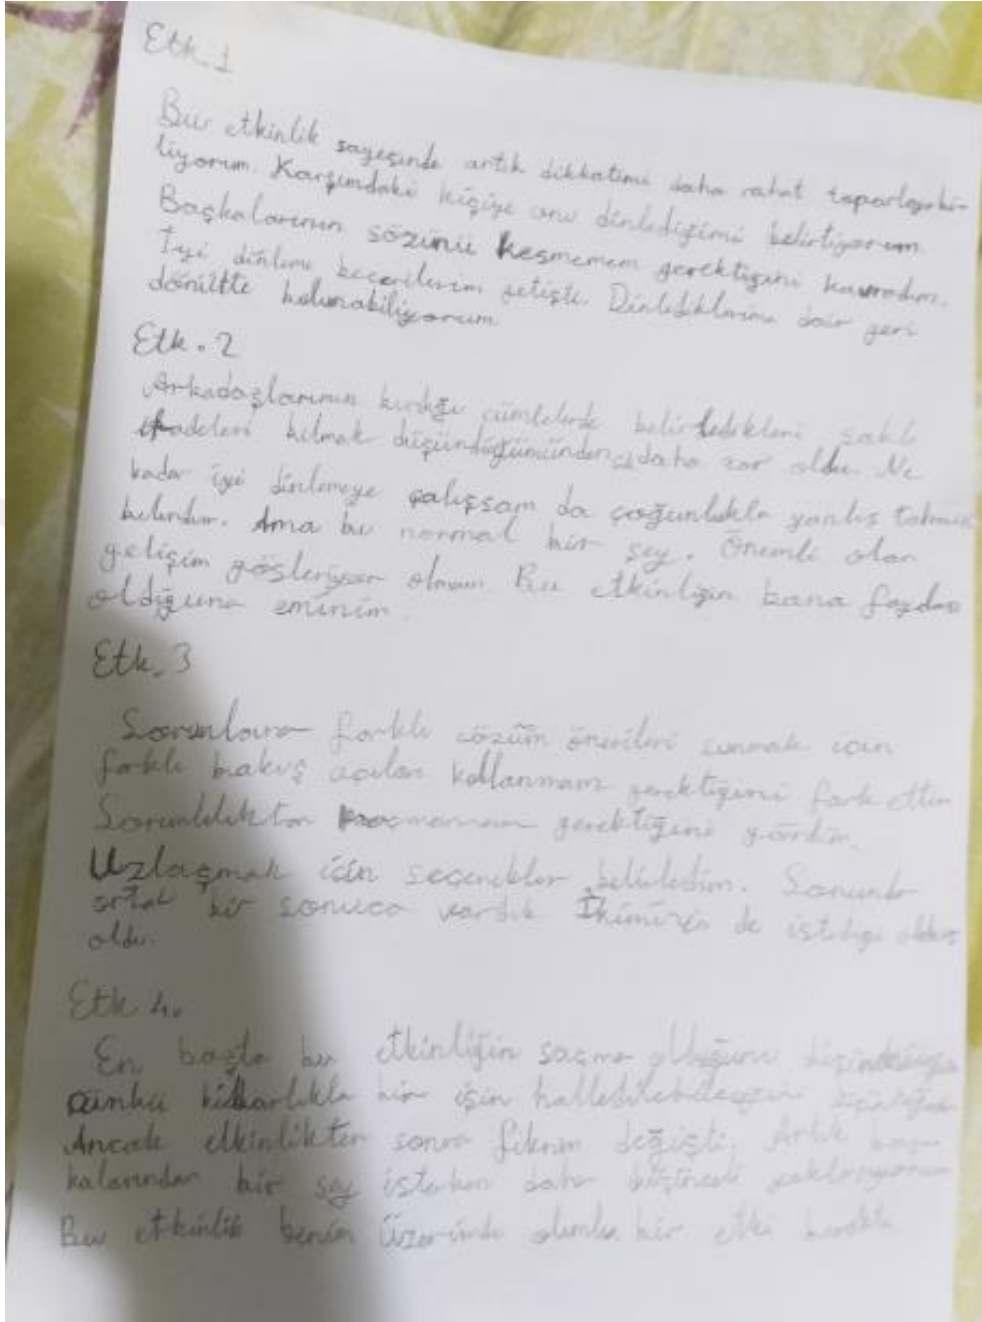 Etk.1
Bu etkinlik sayesinde artık dikkatimi daha rahat toparlayabi-
liyorum. Karşımdaki kişiye onu dinlediğimi belirtiyorum.
Başkalarının sözünü kesmemem gerektiğini kavradım.
İyi dinleme becerilerim gelişti. Dinlediklerime dair geri
dönütte bulunabiliyorum.
Etk.2
Arkadaşlarımın kurduğu cümlelerde saklı
ifadeleri bulmak düşündüğümünden daha zor oldu. Ne
kadar iyi dinlemeye çalışsam da çoğunlukla yanlış tahmin
bulundum. Ama bu normal bir şey. Önemli olan
gelişim gösteriyor olmam. Bu etkinliğin bana faydası
olduğuna eminim.
Etk.3
Sorunlara farklı çözüm önerileri sunmak için
farklı bakış açıları kullanmam gerektiğini fark ettim
gerektiğini gördüm.
Uzlaşmak için seçenekler belirledim. Sonunda
ortak bir sonuca vardık İkimizin de istediği
oldu.
Etk 4.
En başta bu etkinliğin saçma olduğunu
çünkü kibarlıkla bir işin halledilebileceğini
Ancak etkinlikten sonra fikrim değişti. Artık baş-
kalarından bir şey isterken daha yaklaşıyorum
Bu etkinlik benim üzerimde olumlu bir etki bıraktı